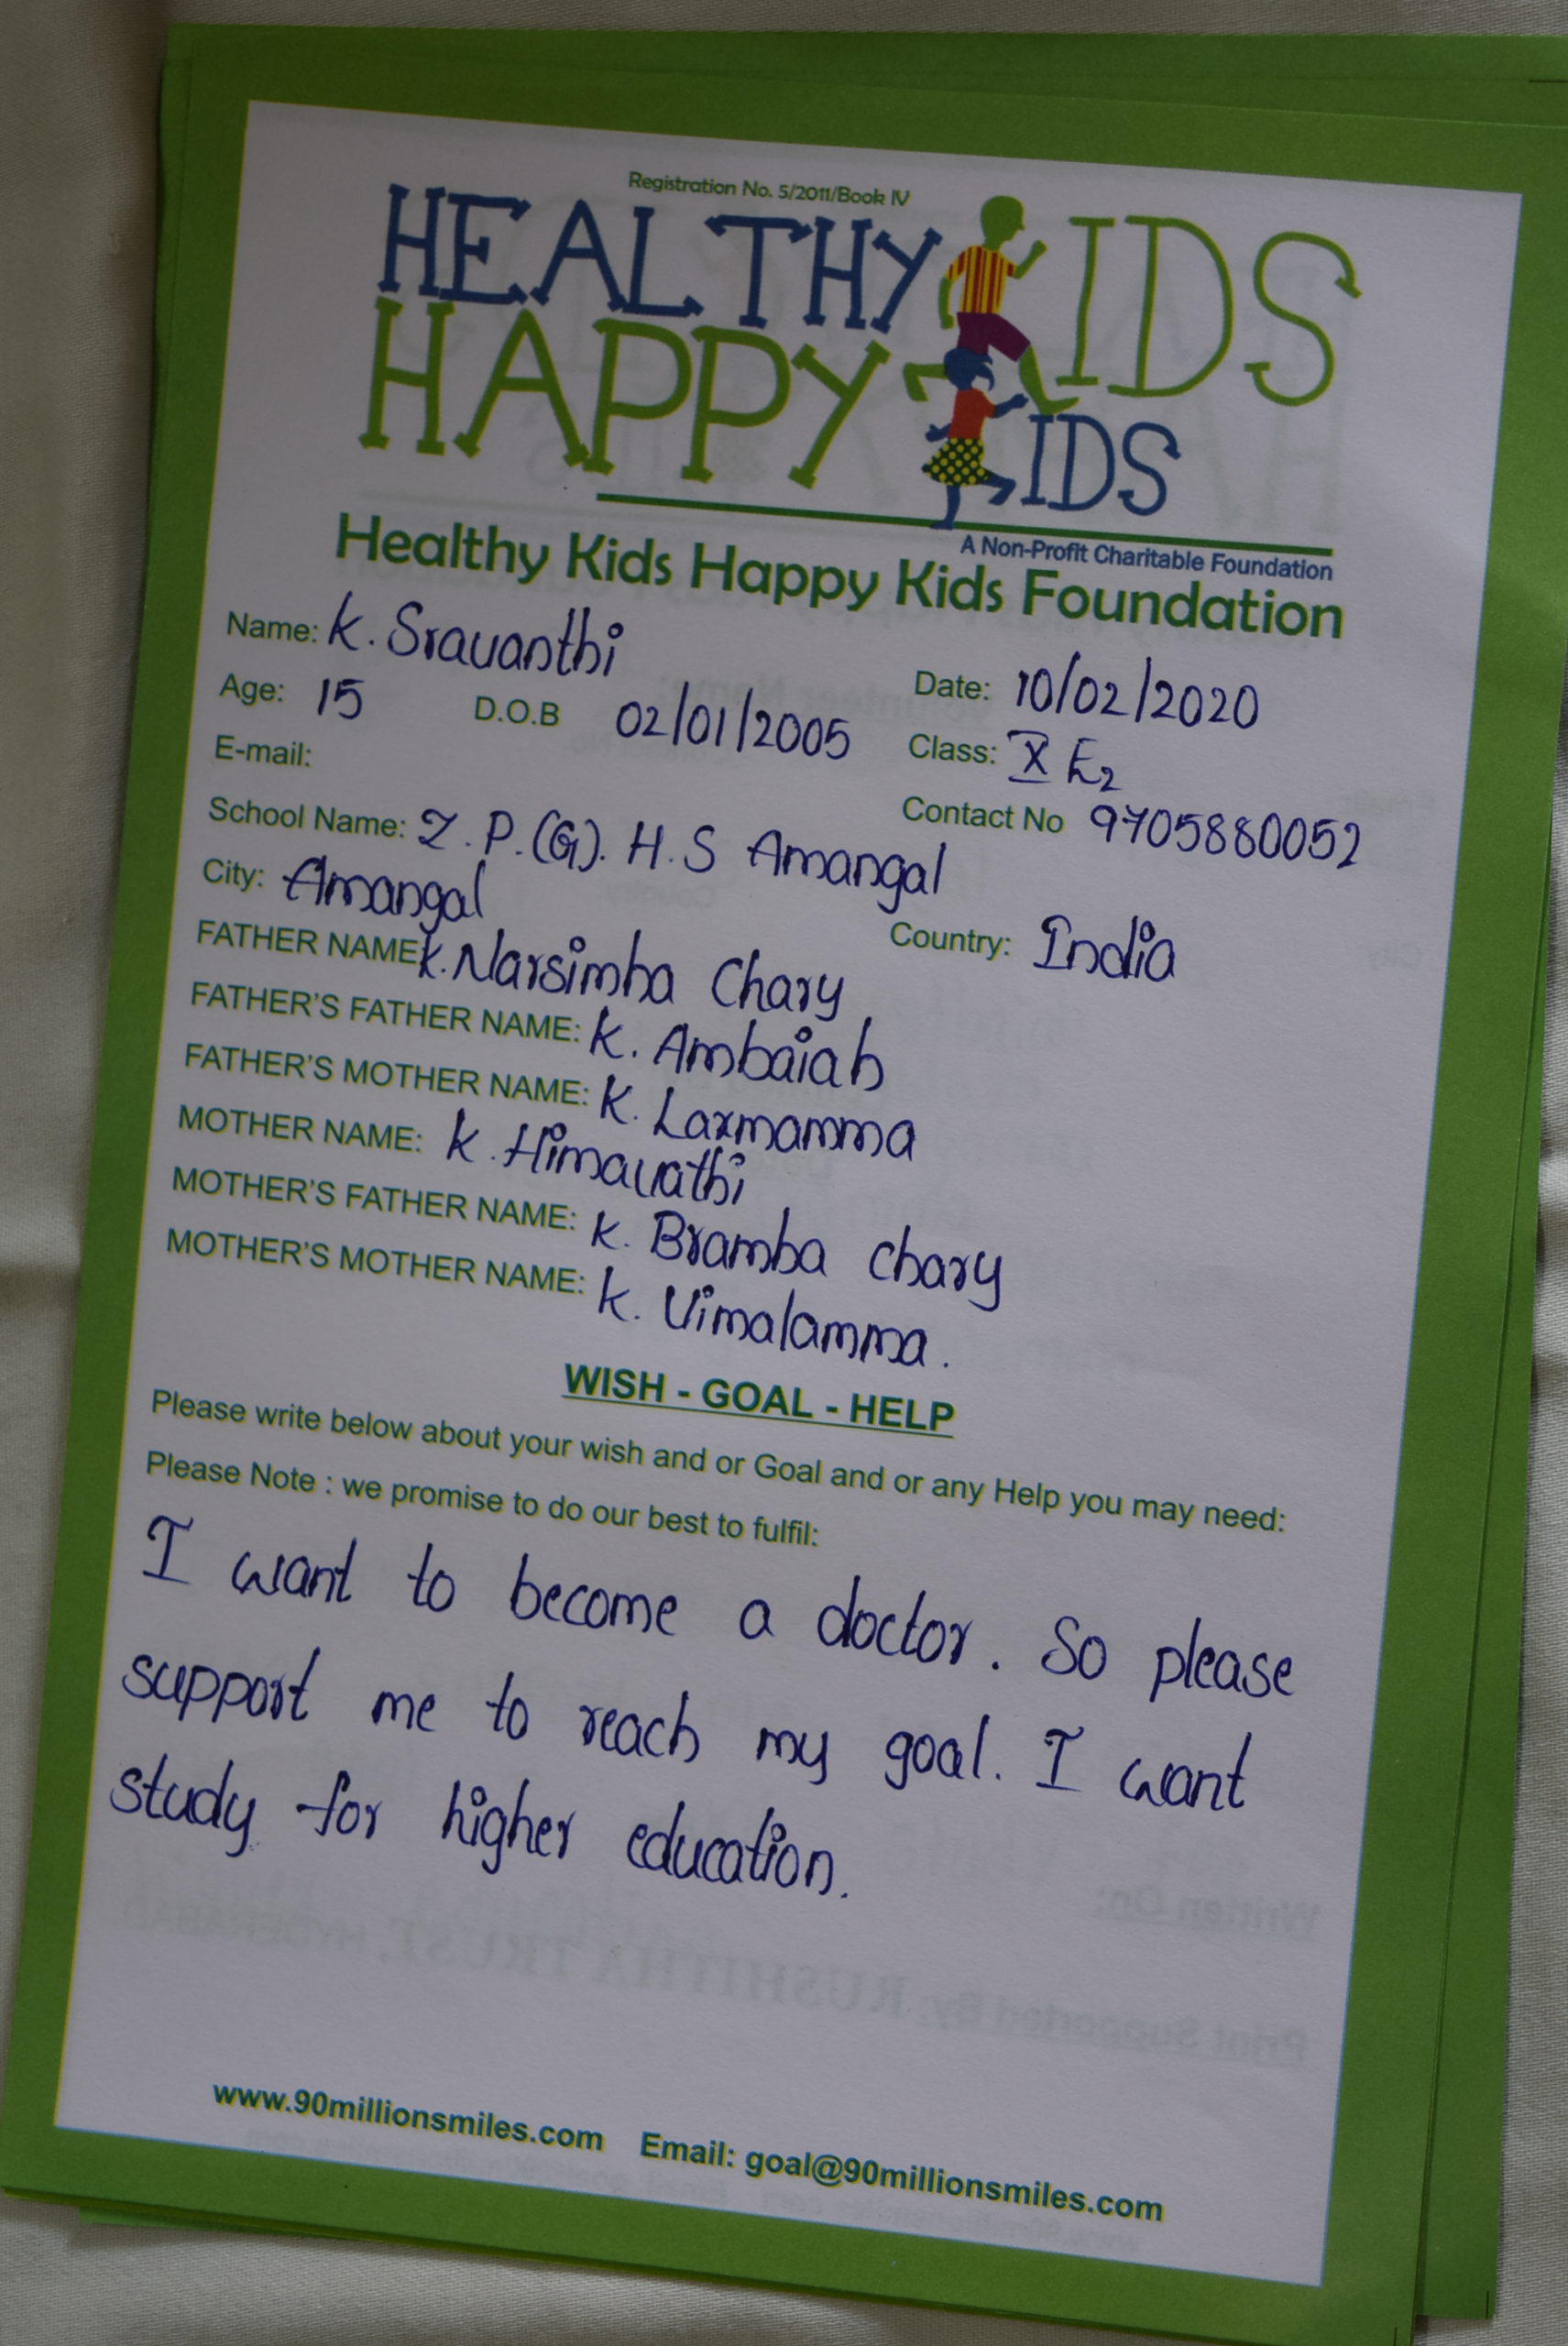 Registration No. 5/2011/Book IV
HEALTHY KIDS
HAPPY KIDS
A Non-Profit Charitable Foundation
Healthy Kids Happy Kids Foundation
Name: K. Sravanthi
Date: 10/02/2020
Age: 15 D.O.B 02/01/2005
Class: X E2
E-mail:
Contact No 9705880052
School Name: Z.P.(G). H.S Amangal
City: Amangal
Country: India
FATHER NAME K. Narsimha Chary
FATHER'S FATHER NAME: K. Ambaiah
FATHER'S MOTHER NAME: K. Laxmamma
MOTHER NAME: K. Himavathi
MOTHER'S FATHER NAME: K. Bramha chary
MOTHER'S MOTHER NAME: K. Vimalamma.
WISH - GOAL - HELP
Please write below about your wish and or Goal and or any Help you may need:
Please Note : we promise to do our best to fulfil:
I want to become a doctor. So please
support me to reach my goal. I want
study for higher education.
Written On:
Print Supported By: RUSHITHA TRUST, HYDERABAD
www.90millionsmiles.com Email: goal@90millionsmiles.com